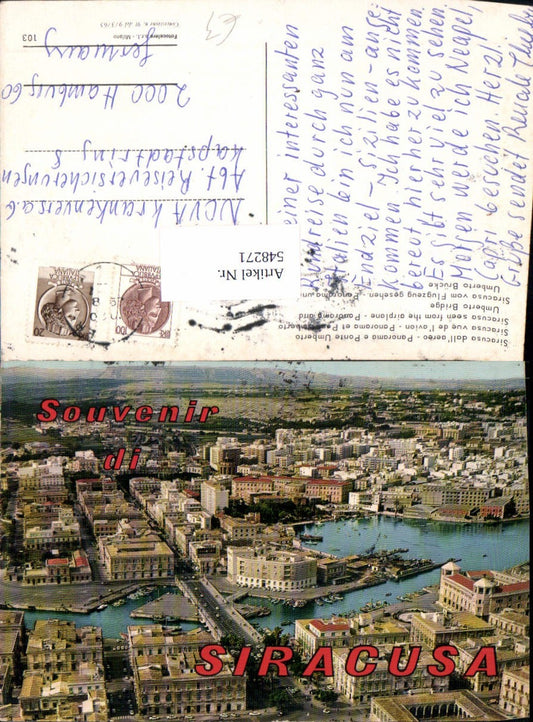 einer interessanten
Rundreise durch ganz
Italien bin ich nun am
Endziel - Sizilien - ange-
kommen. Ich habe es nicht
bereut hierher zu kommen.
Es gibt sehr viel zu sehen.
Morgen werde ich Neapel,
Capri besuchen. Herzl.
Grüße sendet Renate
NOVA Krankenvers. a.G
Abt. Reiseversicherungen
Kapstadtring 8
2000 Hamburg 60
Germany
€3
Artikel Nr.
548271
Siracusa dall'aereo - Panorama e Ponte Umberto
Siracusa vue de l'avion - Panorama et Pont Umberto
Siracusa seen from the airplane - Panorama and
Umberto Bridge
Siracusa vom Flugzeug gesehen - Panorama und
Umberto Brücke
103
Milano
Souvenir
di
SIRACUSA